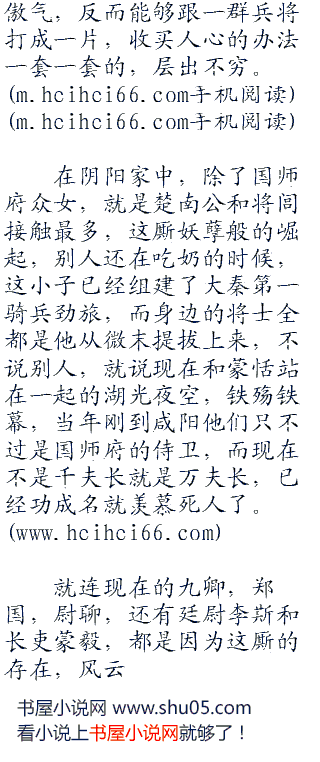 傲气，反而能够跟一群兵将
打成一片，收买人心的办法
一套一套的，层出不穷。
(m.hcihci66.com手机阅读)
(m.hcihci66.com手机阅读)
在阴阳家中，除了国师
府众女，就是楚南公和将闾
接触最多，这厮妖孽般的崛
起，别人还在吃奶的时候，
这小子已经组建了大秦第一
骑兵劲旅，而身边的将士全
都是他从微末提拔上来，不
说别人，就说现在和蒙恬站
在一起的湖光夜空，铁殇铁
幕，当年刚到咸阳他们只不
过是国师府的侍卫，而现在
不是千夫长就是万夫长，已
经功成名就羡慕死人了。
(www.hcihci66.com)
就连现在的九卿，郑
国，尉聊，还有廷尉李斯和
长吏蒙毅，都是因为这厮的
存在，风云
书屋小说网 www.shu05.com
看小说上书屋小说网就够了！